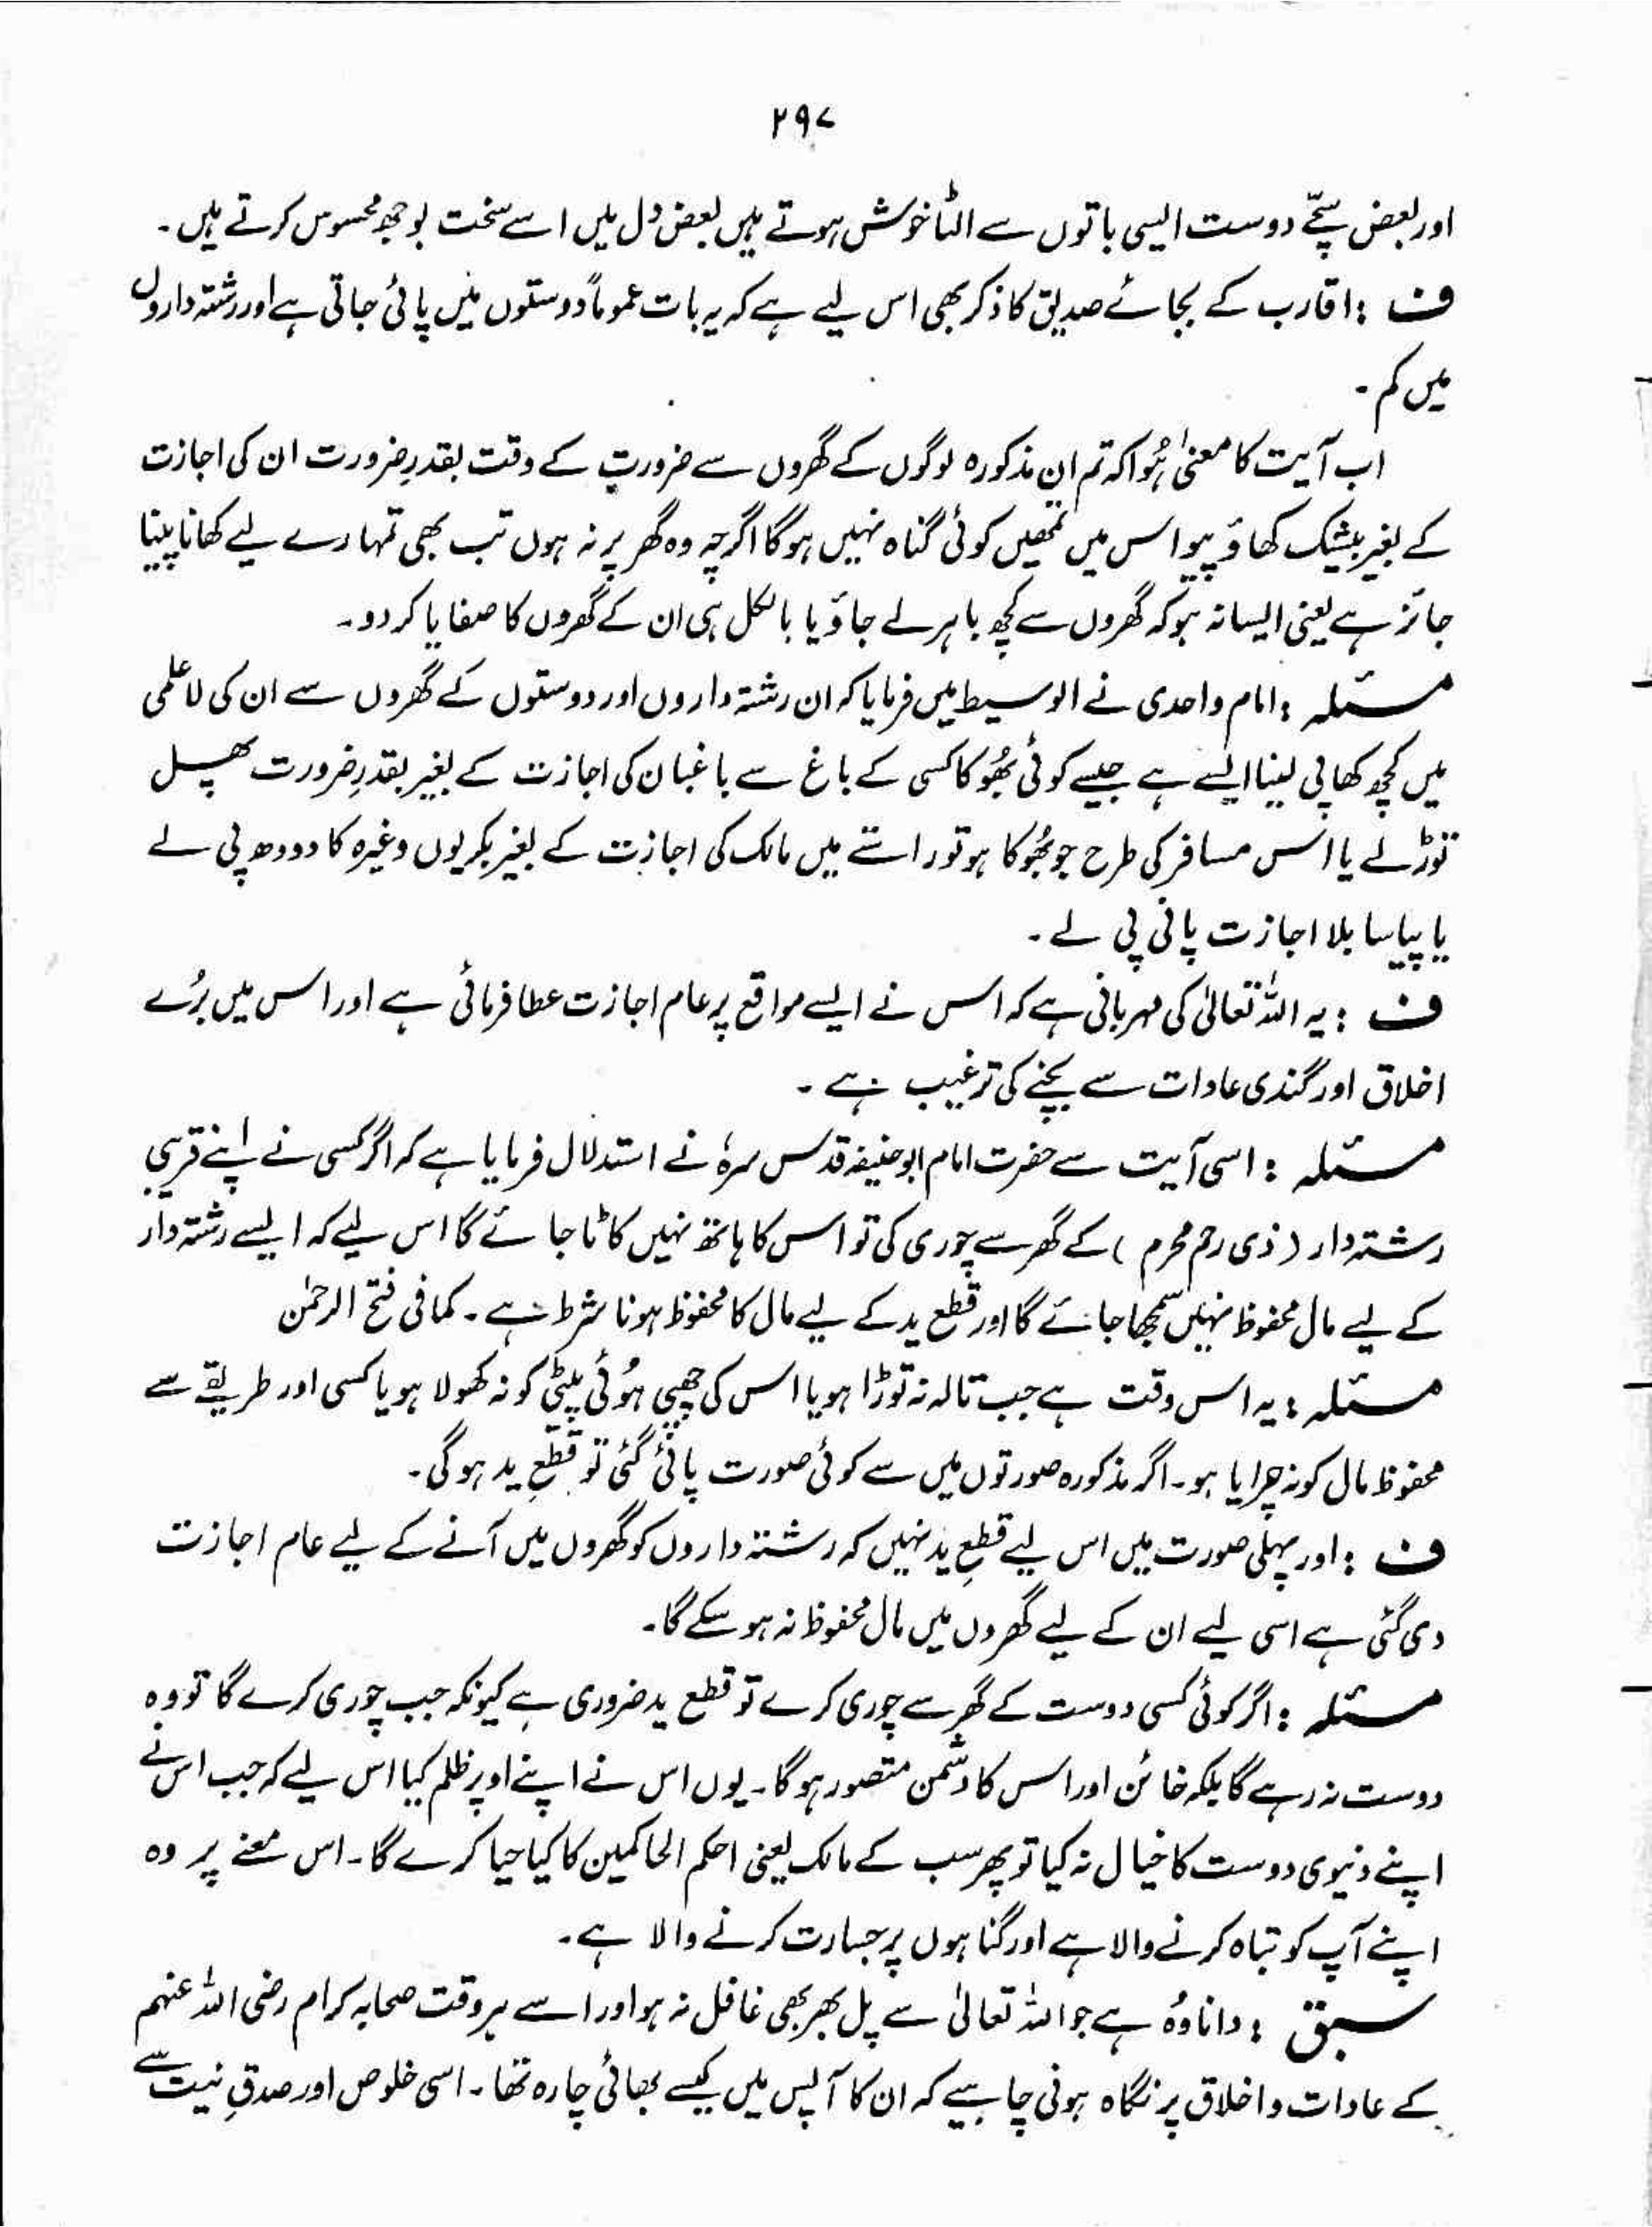 ۲۹۷
اور بعض سچّے دوست ایسی باتوں سے الٹا خوش ہوتے ہیں بعض دل میں اسے سخت بوجھ محسوس کرتے ہیں۔
ف : اقارب کے بجائے صدیق کا ذکر بھی اس لیے ہے کہ یہ بات عموماً دوستوں میں پائی جاتی ہے اور رشتہ داروں
میں کم۔
اب آیت کا معنیٰ ہُوا کہ تم ان مذکورہ لوگوں کے گھروں سے ضرورت کے وقت بقدرِ ضرورت ان کی اجازت
کے بغیر بیشک کھاؤ پیو اس میں تمھیں کوئی گناہ نہیں ہوگا اگرچہ وہ گھر پر نہ ہوں تب بھی تمہارے لیے کھانا پینا
جائز ہے یعنی ایسا نہ ہو کہ گھروں سے کچھ باہر لے جاؤ یا بالکل ہی ان کے گھروں کا صفایا کر دو۔
مسئلہ : امام واحدی نے الوسیط میں فرمایا کہ ان رشتہ داروں اور دوستوں کے گھروں سے ان کی لاعلمی
میں کچھ کھا پی لینا ایسے ہے جیسے کوئی بھُوکا کسی کے باغ سے باغبان کی اجازت کے بغیر بقدرِ ضرورت پھل
توڑ لے یا اس مسافر کی طرح جو بھُوکا ہو تو راستے میں مالک کی اجازت کے بغیر بکریوں وغیرہ کا دودھ پی لے
یا پیاسا بلا اجازت پانی پی لے۔
ف : یہ اللہ تعالیٰ کی مہربانی ہے کہ اس نے ایسے مواقع پر عام اجازت عطا فرمائی ہے اور اس میں بُرے
اخلاق اور گندی عادات سے بچنے کی ترغیب ہے۔
مسئلہ : اسی آیت سے حضرت امام ابو حنیفہ قدس سرہٗ نے استدلال فرمایا ہے کہ اگر کسی نے اپنے قریبی
رشتہ دار (ذی رحم محرم) کے گھر سے چوری کی تو اس کا ہاتھ نہیں کاٹا جائے گا اس لیے کہ ایسے رشتہ دار
کے لیے مال محفوظ نہیں سمجھا جائے گا اور قطع ید کے لیے مال کا محفوظ ہونا شرط ہے۔ کما فی فتح الرحمٰن
مسئلہ : یہ اس وقت ہے جب تالہ نہ توڑا ہو یا اس کی چھپی ہُوئی پیٹی کو نہ کھولا ہو یا کسی اور طریقے سے
محفوظ مال کو نہ چرایا ہو۔ اگر مذکورہ صورتوں میں سے کوئی صورت پائی گئی تو قطعِ ید ہوگی۔
ف : اور پہلی صورت میں اس لیے قطعِ ید نہیں کہ رشتہ داروں کو گھروں میں آنے کے لیے عام اجازت
دی گئی ہے اسی لیے ان کے لیے گھروں میں مال محفوظ نہ ہو سکے گا۔
مسئلہ : اگر کوئی کسی دوست کے گھر سے چوری کرے تو قطع ید ضروری ہے کیونکہ جب چوری کرے گا تو وہ
دوست نہ رہے گا بلکہ خائن اور اس کا دشمن متصور ہوگا۔ یوں اس نے اپنے اوپر ظلم کیا اس لیے کہ جب اس نے
اپنے دنیوی دوست کا خیال نہ کیا تو پھر سب کے مالک یعنی احکم الحاکمین کا کیا حیا کرے گا۔ اس معنے پر وہ
اپنے آپ کو تباہ کرنے والا ہے اور گناہوں پر جسارت کرنے والا ہے۔
سبق : دانا وُہ ہے جو اللہ تعالیٰ سے پل بھر بھی غافل نہ ہو اور اسے ہر وقت صحابہ کرام رضی اللہ عنہم
کے عادات و اخلاق پر نگاہ ہونی چاہیے کہ ان کا آپس میں کیسے بھائی چارہ تھا۔ اسی خلوص اور صدقِ نیت سے